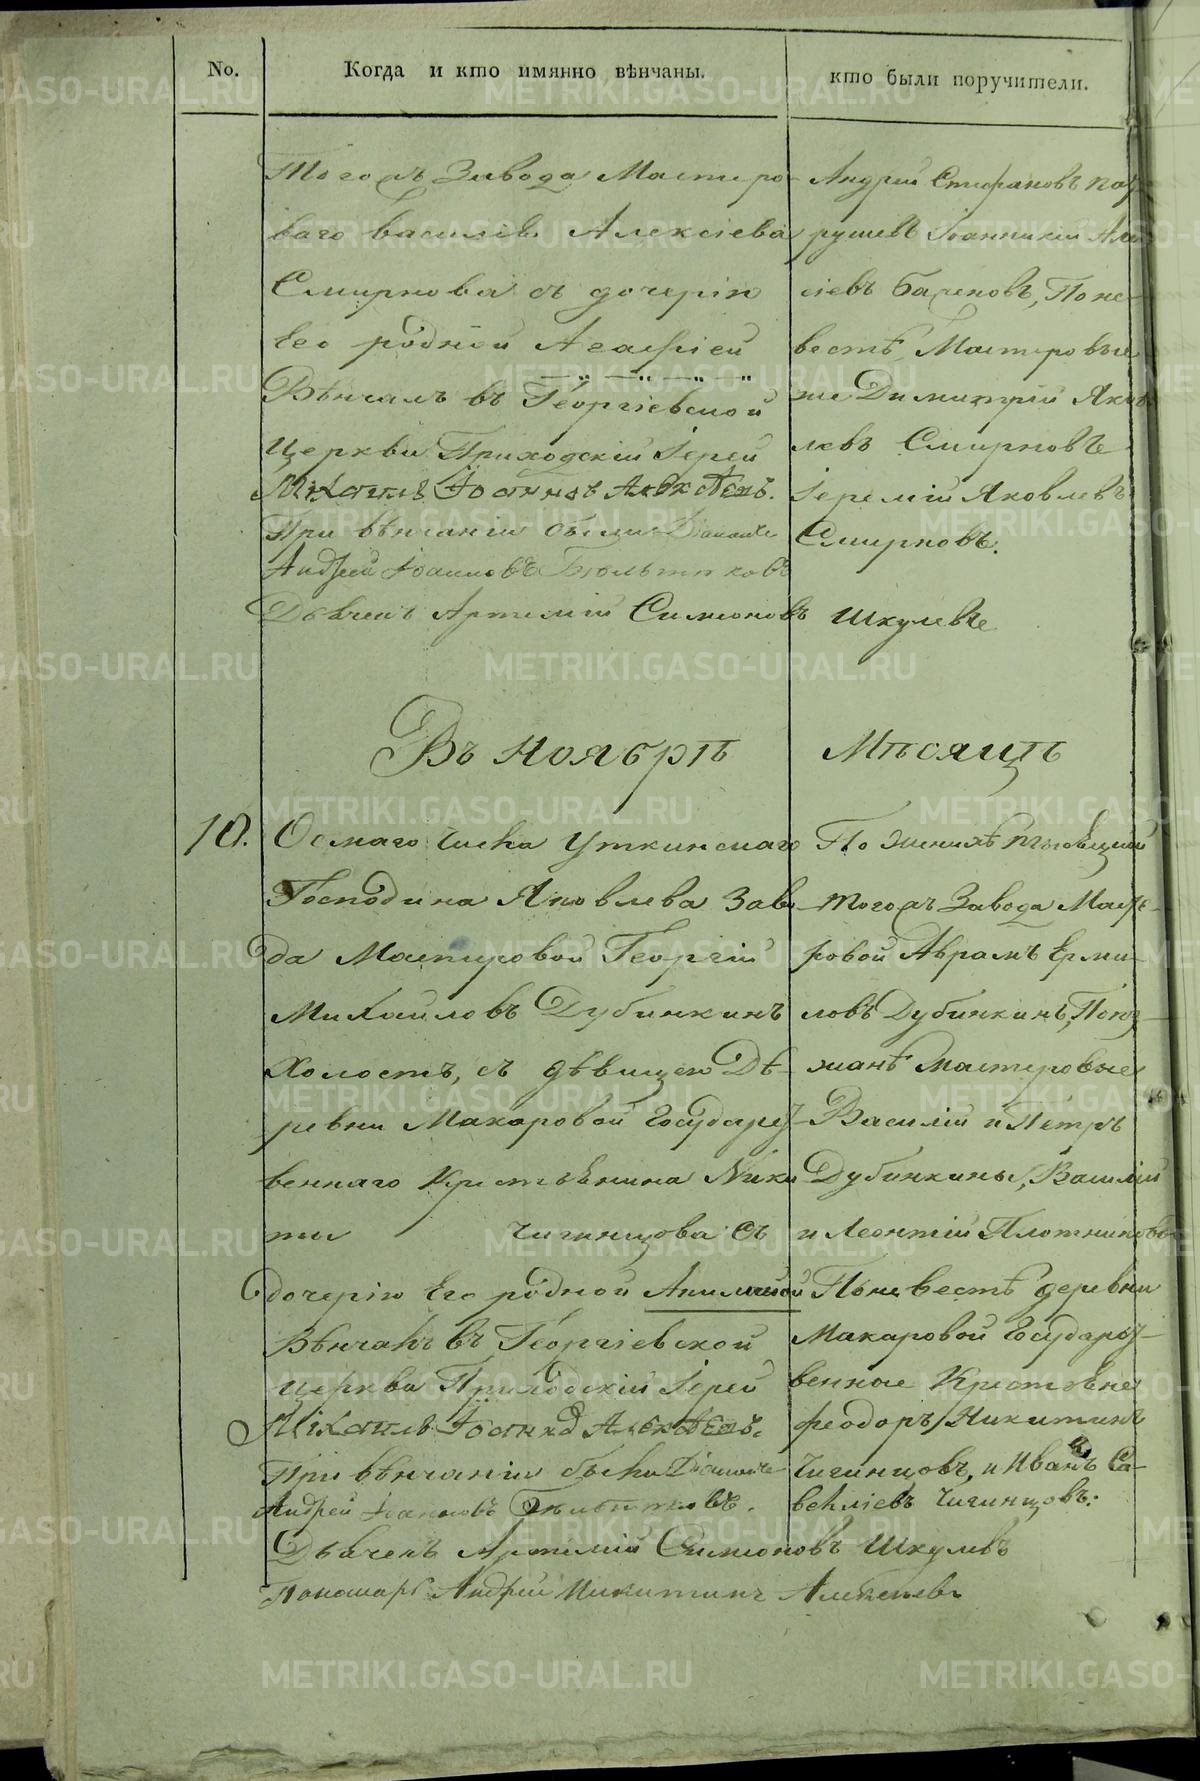 No.
Когда и кто имянно вѣнчаны.
кто были поручители.
Тогожъ Завода Мастеро-
ваго Василія Алексіева
Смирнова съ дочерію
Его родной Агафіей
Вѣнчалъ въ Георгіевской
Церкви Приходскій Іерей
Михаилъ Іоанновъ
При вѣнчаніи были Діаконъ
Андрей Іоанновъ
Дьячекъ Артемій Симеоновъ Шкулевъ
Андрей Стефановъ
Іоанникій Але-
сіевъ Бариновъ, По не-
вестѣ Мастеровые
Димитрій Яков-
левъ Смирновъ
Іеремій Яковлевъ
Смирновъ.
Въ Ноябрѣ Мѣсяцѣ
10.
Осмаго числа Уткинскаго
Господина Яковлева Заво-
да Мастеровой Георгій
Михайловъ Дубинкинъ
Холостъ, съ дѣвицею Де-
ревни Макаровой Государс-
веннаго Крестьянина Ники-
ты Чигинцова съ
дочерію Его родной
Вѣнчалъ въ Георгіевской
Церкви Приходскій Іерей
Михаилъ
При вѣнчаніи были Діаконъ
Андрей Іоанновъ
Дьячекъ Артемій Симеоновъ Шкулевъ
Пономарь Андрей Никитинъ
По женихѣ
тогожъ Завода Масте-
ровой Аврамъ Ерми-
ловъ Дубинкинъ, Поез-
жанѣ Мастеровые
Василій и Петръ
Дубинкины, Василій
и Леонтій Плотниковы
По невестѣ деревни
Макаровой Государс-
венные Крестьяне
Феодоръ Никитинъ
Чигинцовъ, и Иванъ Са-
веліевъ Чигинцовъ:
METRIKI.GASO-URAL.RU